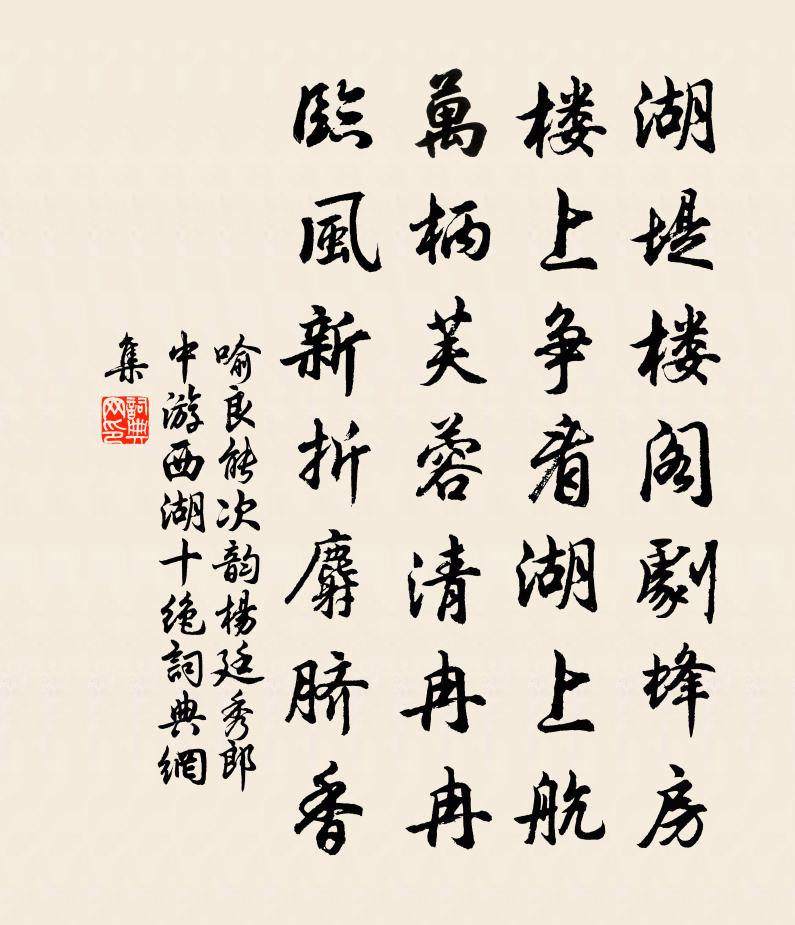 湖堤楼阁劇蜂房
楼上争看湖上航
萬柄芙蓉清冉冉
臨風新折麝脐香
喻良能次韵楊廷秀郎
中游西湖十绝詞典網
集
詞典
网印